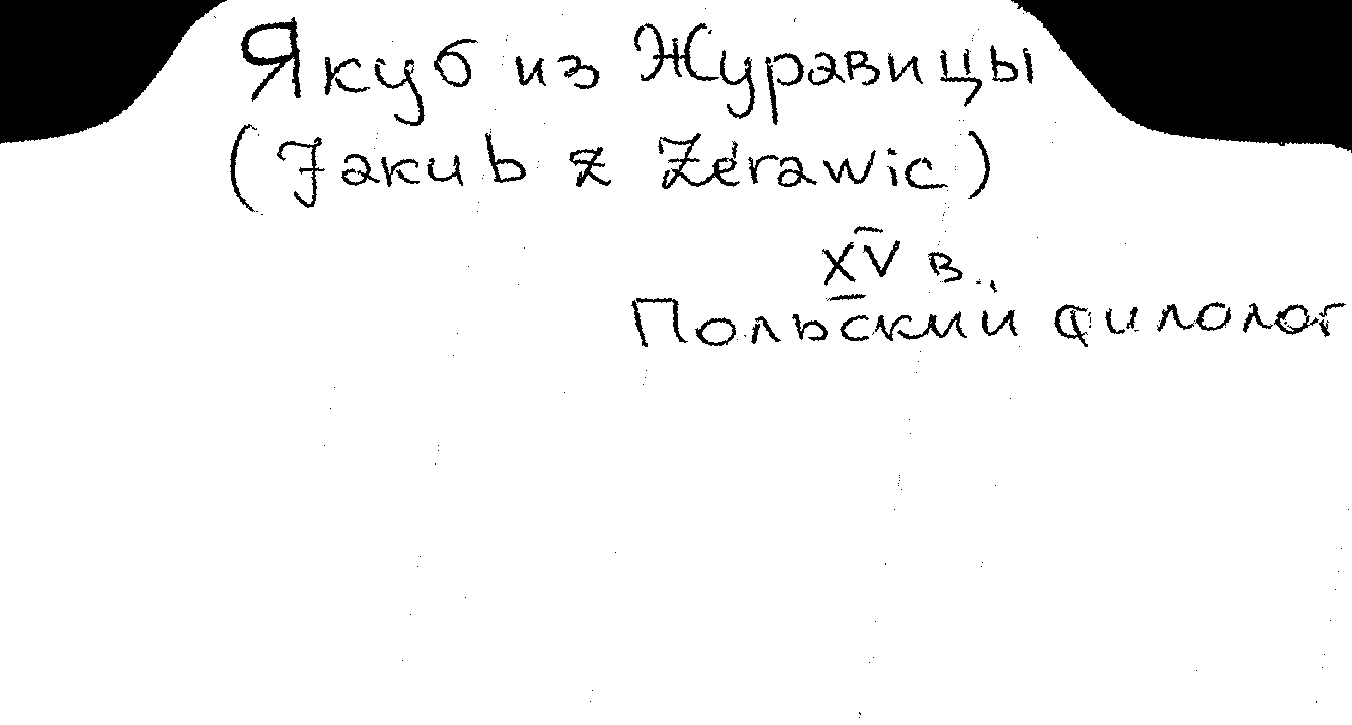 Якуб из Журавицы
(Jakub z Zérawic)
XV в.,
Польский филолог